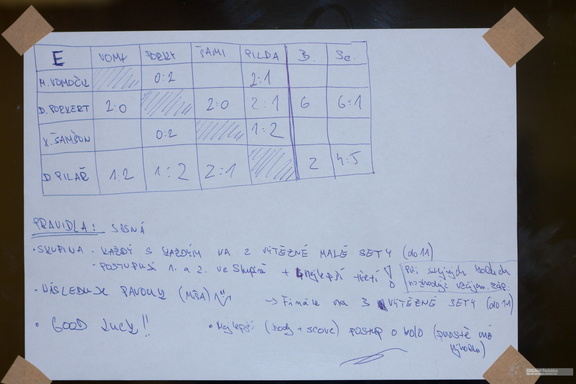 E VOMY PORKY ŠAMI PILDA B. Sc.
M. VOMOČIL 0:2 2:1
D. PORKERT 2:0 2:0 2:1 6 6:1
K. ŠAMŠUN 0:2 1:2
D. PILAŘ 1:2 1:2 2:1 2 4:5
PRAVIDLA:
• SKUPINA - KAŽDÝ S KAŽDÝM NA 2 VÍTĚZNÉ MALÉ SETY (do 11)
- POSTUPUJÍ 1. a 2. ve skupině + nejlepší třetí
Při stejných bodech rozhoduje vzájem. záp.
• NÁSLEDUJE PAVOUK
→ Finále na 3 VÍTĚZNÉ SETY (do 11)
• GOOD LUCK!!
• Nejlepší (body + score) postup o kolo (prostě má výhodu)